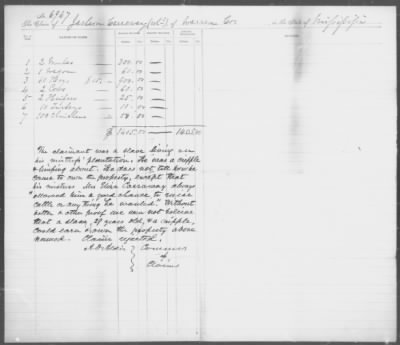 No 6967
The Claim of Jackson Caraway (col'd) of Warren Co. in the State of Mississippi
1 2 Mules 300.00
2 1 Wagon 60.00
3 60 Hogs 900.00
4 2 Cows 60.00
5 2 25.00
6 10 Turkeys 10.00
7 100 Chickens 50
$1405.00 1405.00
The claimant was a slave living on
his mistress' plantation. He was a cripple
& limping about. He does not tell how he
came to own the property, except that
his mistress Mrs Eliza Carraway always
allowed him a good chance to raise
cattle or anything he wanted. Without
better & other proof we can not believe
that a slave, 29 years old, & a cripple,
could earn & own the property above
named. Claim rejected.
A. O. Aldis Commrs
of
Claims